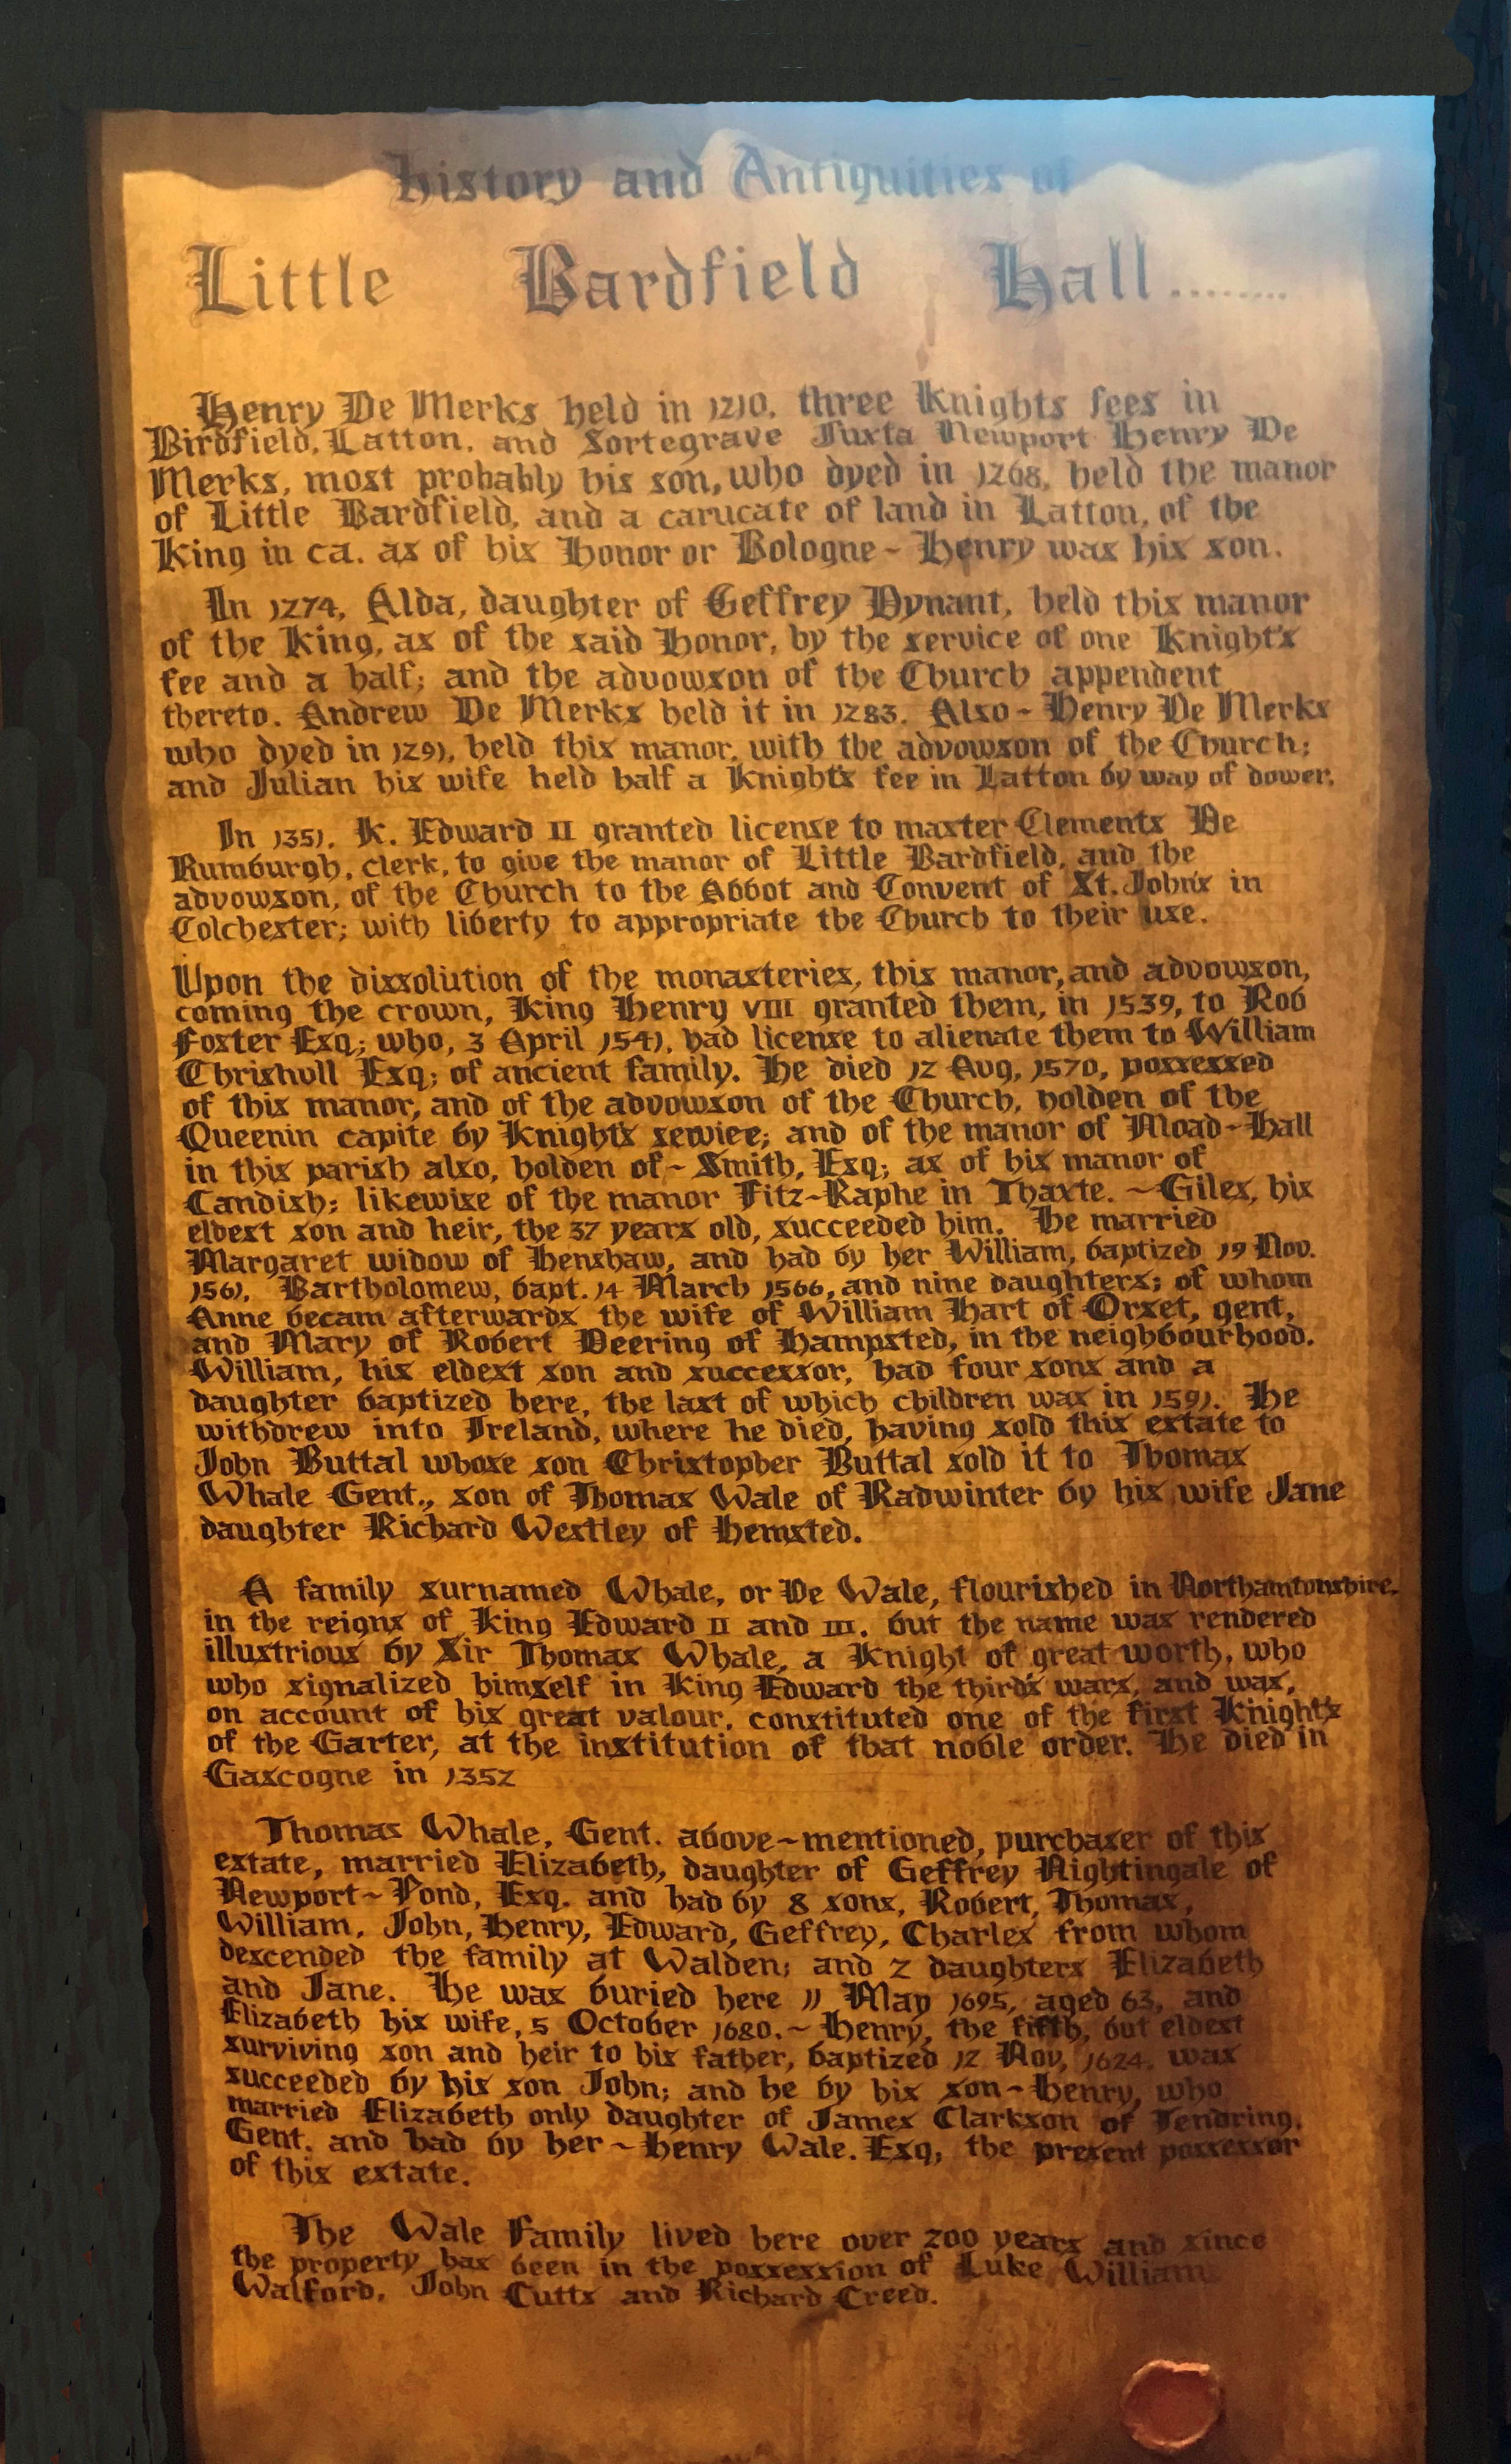 History and Antiquities of
Little Bardfield Hall........
Henry De Merks held in 1210, three Knights fees in
Birdfield, Latton, and Sortegrave Juxta Newport Henry De
Merks, most probably his son, who dyed in 1268, held the manor
of Little Bardfield, and a carucate of land in Latton, of the
King in ca. as of his Honor or Bologne ~ Henry was his son.
In 1274, Alda, daughter of Geffrey Dynant, held this manor
of the King, as of the said Honor, by the service of one Knight's
fee and a half; and the advowson of the Church appendent
thereto. Andrew De Merks held it in 1283. Also ~ Henry De Merks
who dyed in 1291, held this manor, with the advowson of the Church;
and Julian his wife held half a Knight's fee in Latton by way of dower.
In 1351, K. Edward II granted license to master Clements De
Rumburgh, clerk, to give the manor of Little Bardfield, and the
advowson, of the Church to the Abbot and Convent of St. John's in
Colchester; with liberty to appropriate the Church to their use.
Upon the dissolution of the monasteries, this manor, and advowson,
coming the crown, King Henry VIII granted them, in 1539, to Rob
Foster Esq; who, 3 April 1541, had license to alienate them to William
Chrishull Esq; of ancient family. He died 12 Aug, 1570, possessed
of this manor, and of the advowson of the Church, holden of the
Queenin capite by Knight's serwice; and of the manor of Moad-Hall
in this parish also, holden of ~ Smith, Esq; as of his manor of
Candish; likewise of the manor Fitz-Raphe in Thaxte. ~ Giles, his
eldest son and heir, the 37 years old, succeeded him. He married
Margaret widow of Henshaw, and had by her William, baptized 19 Nov.
1561, Bartholomew, bapt. 14 March 1566, and nine daughters; of whom
Anne becam afterwards the wife of William Hart of Orset, gent,
and Mary of Robert Deering of Hampsted, in the neighbourhood.
William, his eldest son and successor, had four sons and a
daughter baptized here, the last of which children was in 1591. He
withdrew into Ireland, where he died, having sold this estate to
John Buttal whose son Christopher Buttal sold it to Thomas
Whale Gent., son of Thomas Wale of Radwinter by his wife Jane
daughter Richard Westley of Hemsted.
A family surnamed Whale, or De Wale, flourished in Northamtonshire,
in the reigns of King Edward II and III. but the name was rendered
illustrious by Sir Thomas Whale, a Knight of great worth, who
who signalized himself in King Edward the third's wars, and was,
on account of his great valour, constituted one of the first Knight's
of the Garter, at the institution of that noble order. He died in
Gascogne in 1352
Thomas Whale, Gent. above-mentioned, purchaser of this
estate, married Elizabeth, daughter of Geffrey Nightingale of
Newport~Pond, Esq. and had by 8 sons, Robert, Thomas,
William, John, Henry, Edward, Geffrey, Charles from whom
descended the family at Walden; and 2 daughters Elizabeth
and Jane. He was buried here 11 May 1695, aged 63, and
Elizabeth his wife, 5 October 1680. ~ Henry, the fifth, but eldest
surviving son and heir to his father, baptized 12 Nov, 1624, was
succeeded by his son John; and he by his son ~ Henry, who
married Elizabeth only daughter of James Clarkson of Tendring,
Gent. and had by her ~ Henry Wale. Esq, the present possessor
of this estate.
The Wale Family lived here over 200 years and since
the property has been in the possession of Luke William
Walford, John Cutts and Richard Creed.